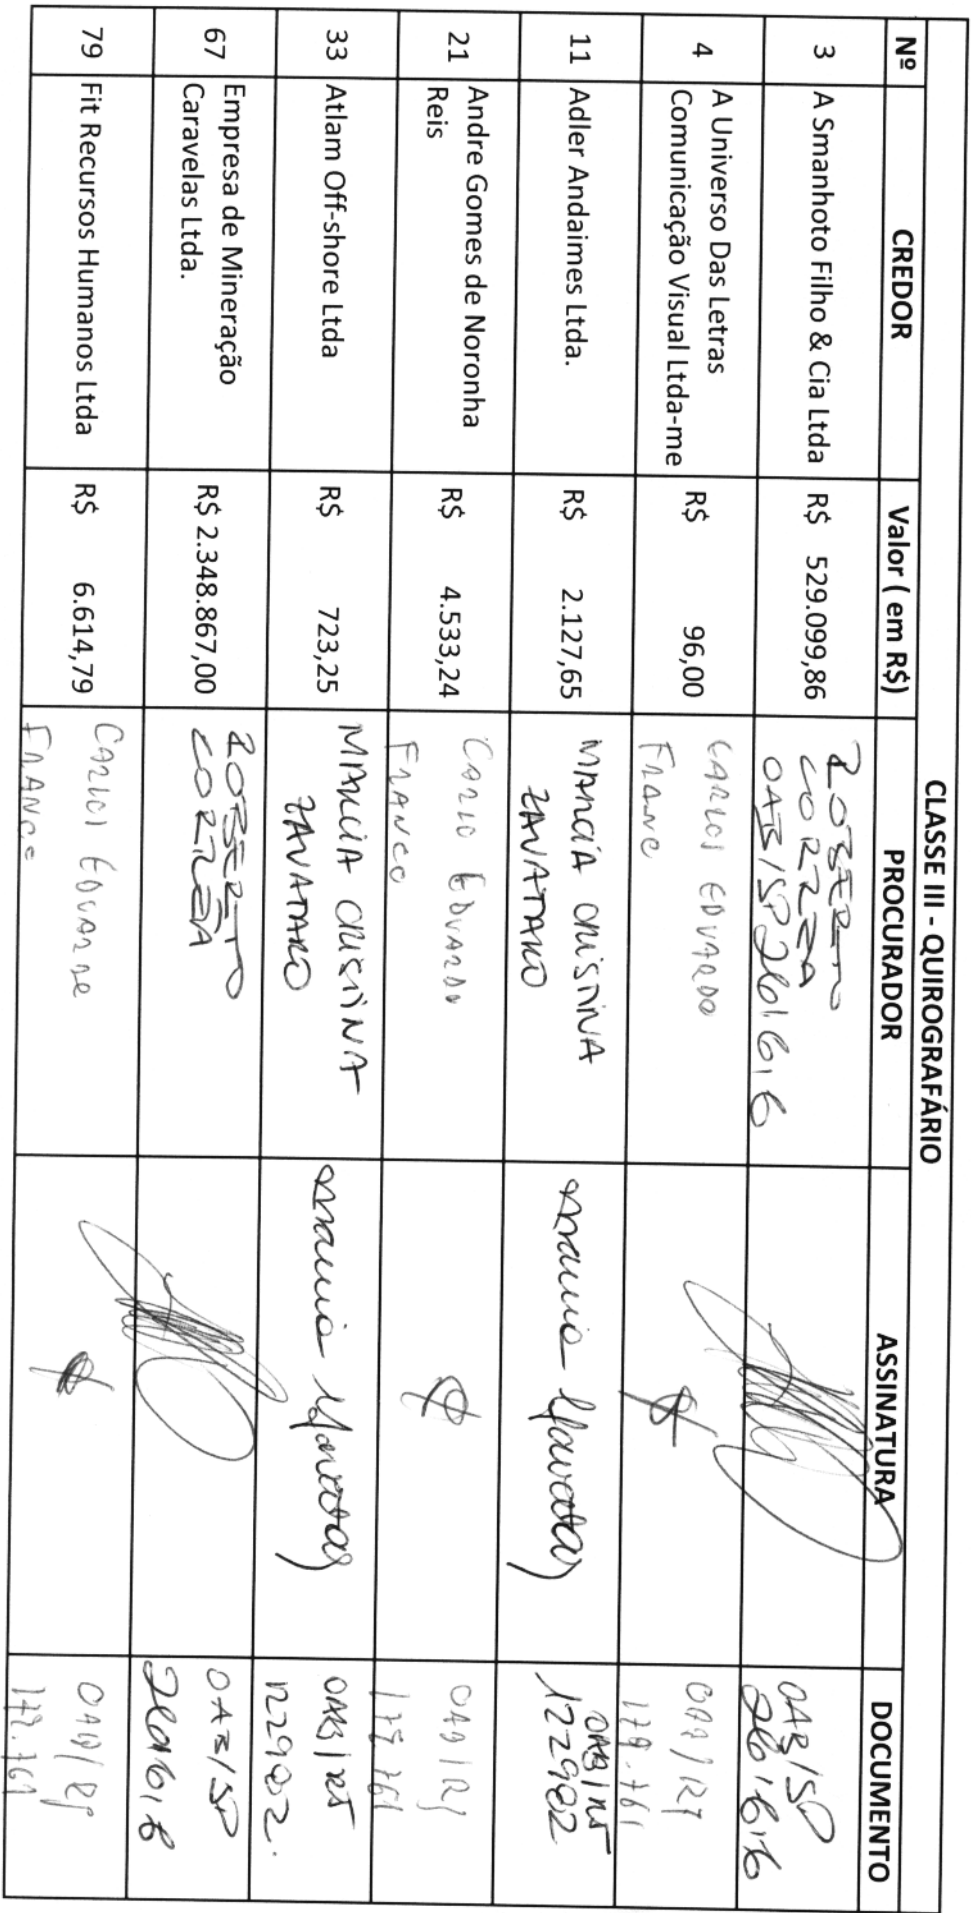 CLASSE III - QUIROGRAFÁRIO
Nº CREDOR Valor ( em R$) PROCURADOR ASSINATURA DOCUMENTO
3 A Smanhoto Filho & Cia Ltda R$ 529.099,86 ROBERTO
CORREA
OAB/SP 261616 OAB/SP
261616
4 A Universo Das Letras
Comunicação Visual Ltda-me R$ 96,00 CARLOS EDUARDO
FRANC OAB/RJ
178.761
11 Adler Andaimes Ltda. R$ 2.127,65 MARCIA CRISTINA
ZAVATARO OAB/RJ
122982
21 Andre Gomes de Noronha
Reis R$ 4.533,24 CARLO EDUARDO
FRANCO OAB/RJ
178761
33 Atlam Off-shore Ltda R$ 723,25 MARCIA CRISTINA
ZAVATARO OAB/RJ
122982.
67 Empresa de Mineração
Caravelas Ltda. R$ 2.348.867,00 ROBERTO
CORRÊA OAB/SP
261616
79 Fit Recursos Humanos Ltda R$ 6.614,79 CARLOS EDUARDO
FRANCO OAB/RJ
178.761